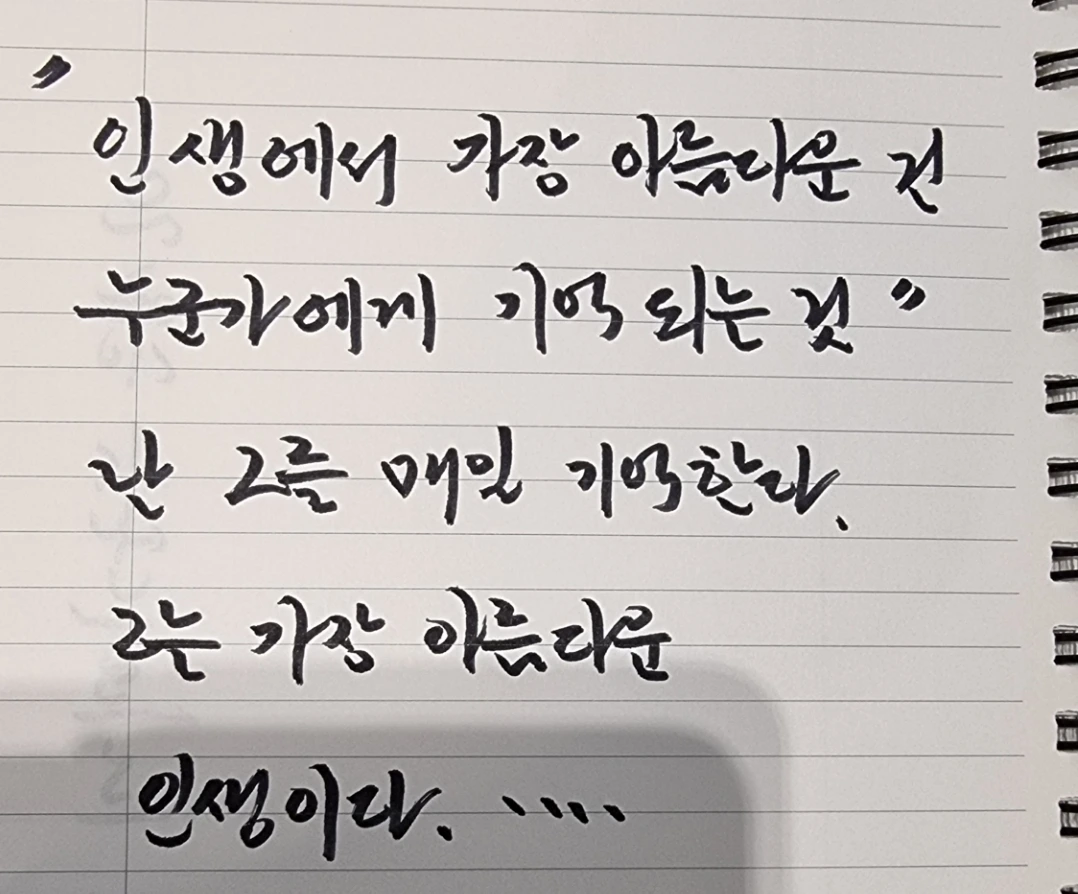 "인생에서 가장 아름다운 건
누군가에게 기억 되는 것"
난 그를 매일 기억한다.
그는 가장 아름다운
인생이다. ....